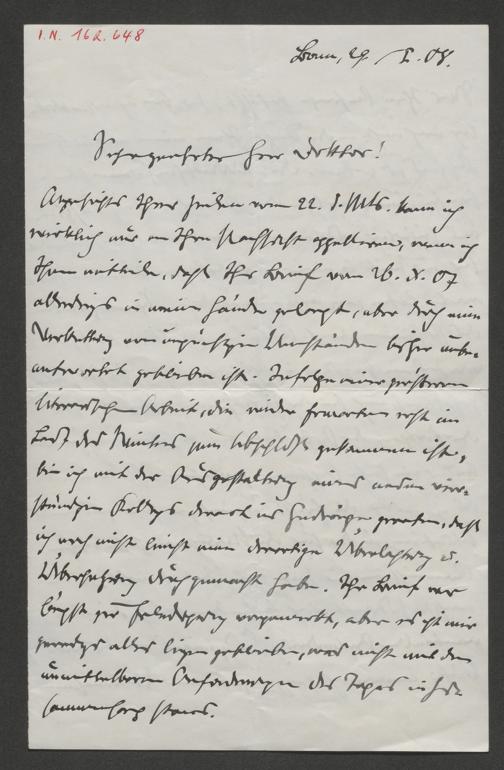 I.N. 162.648
Bonn, 29. I. 08.
Sehr geehrter Herr Doktor!
Angesichts Ihrer Zeilen vom 22. d. Mts. kann ich
wirklich nur an Ihre Nachsicht appellieren, wenn ich
Ihnen mitteile, daß Ihr Brief vom 26. X. 07
allerdings in meine Hände gelangt, aber durch eine
Verkettung von ungünstigen Umständen bisher unbe-
antwortet geblieben ist. Infolge einer größeren
literarischen Arbeit, die wider Erwarten erst im
Lauf des Winters zum Abschluß gekommen ist,
bin ich mit der Ausgestaltung eines neuen vier-
stündigen Kollegs derart ins Gedränge geraten, daß
ich noch nicht leicht eine derartige Überlastung u.
durchgemacht habe. Ihr Brief war
längst zur Erledigung vorgemerkt, aber es ist mir
geradezu alles liegen geblieben, was nicht mit den
unmittelbaren Anforderungen des Tages in Zu-
sammenhang stand.